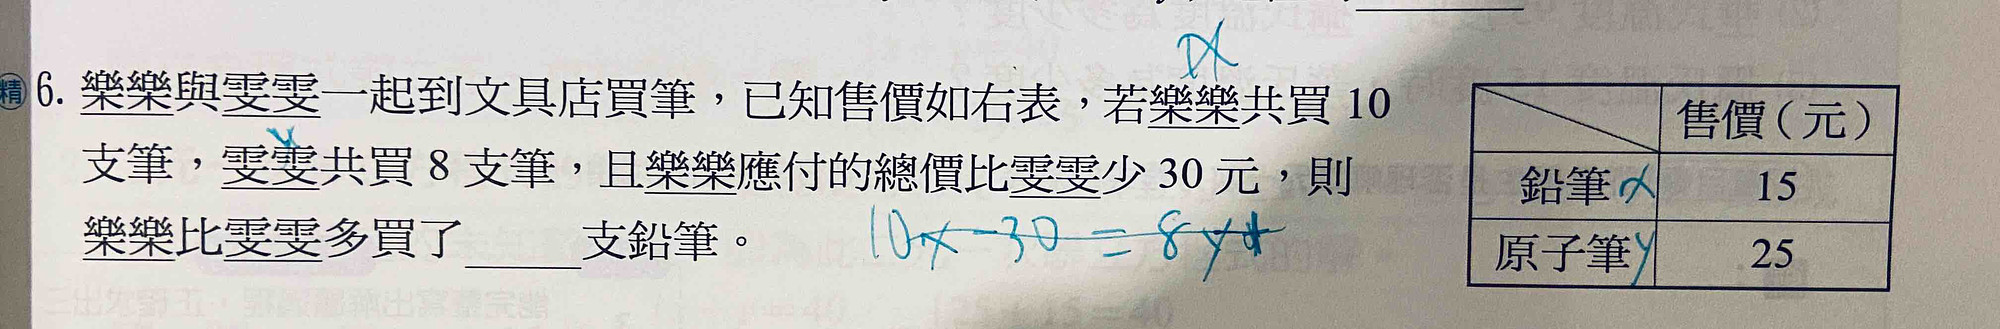 x
精 6. 樂樂與雯雯一起到文具店買筆，已知售價如右表，若樂樂共買 10
y
支筆，雯雯共買 8 支筆，且樂樂應付的總價比雯雯少 30 元，則
樂樂比雯雯多買了_____支鉛筆。
10x-30=8y+
售價（元）
鉛筆x 15
原子筆y 25